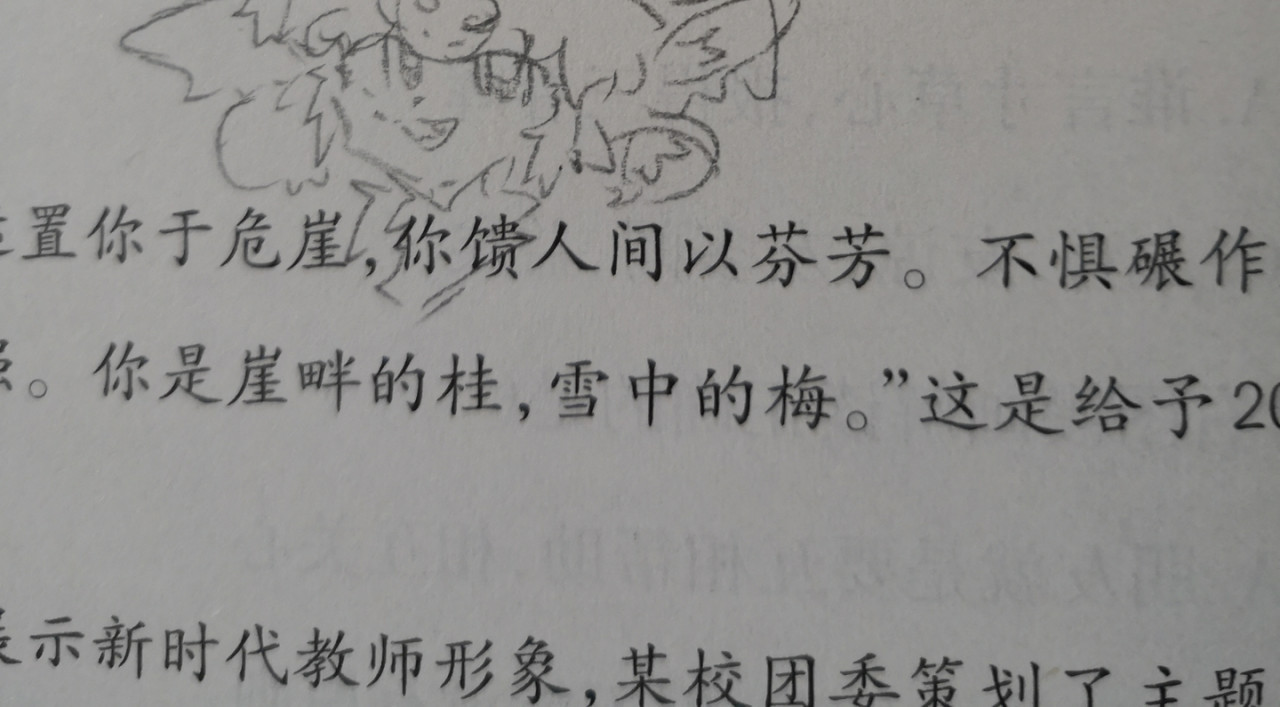 置你于危崖,你馈人间以芬芳。不惧碾作
。你是崖畔的桂,雪中的梅。”这是给予20
展示新时代教师形象,某校团委策划了主题